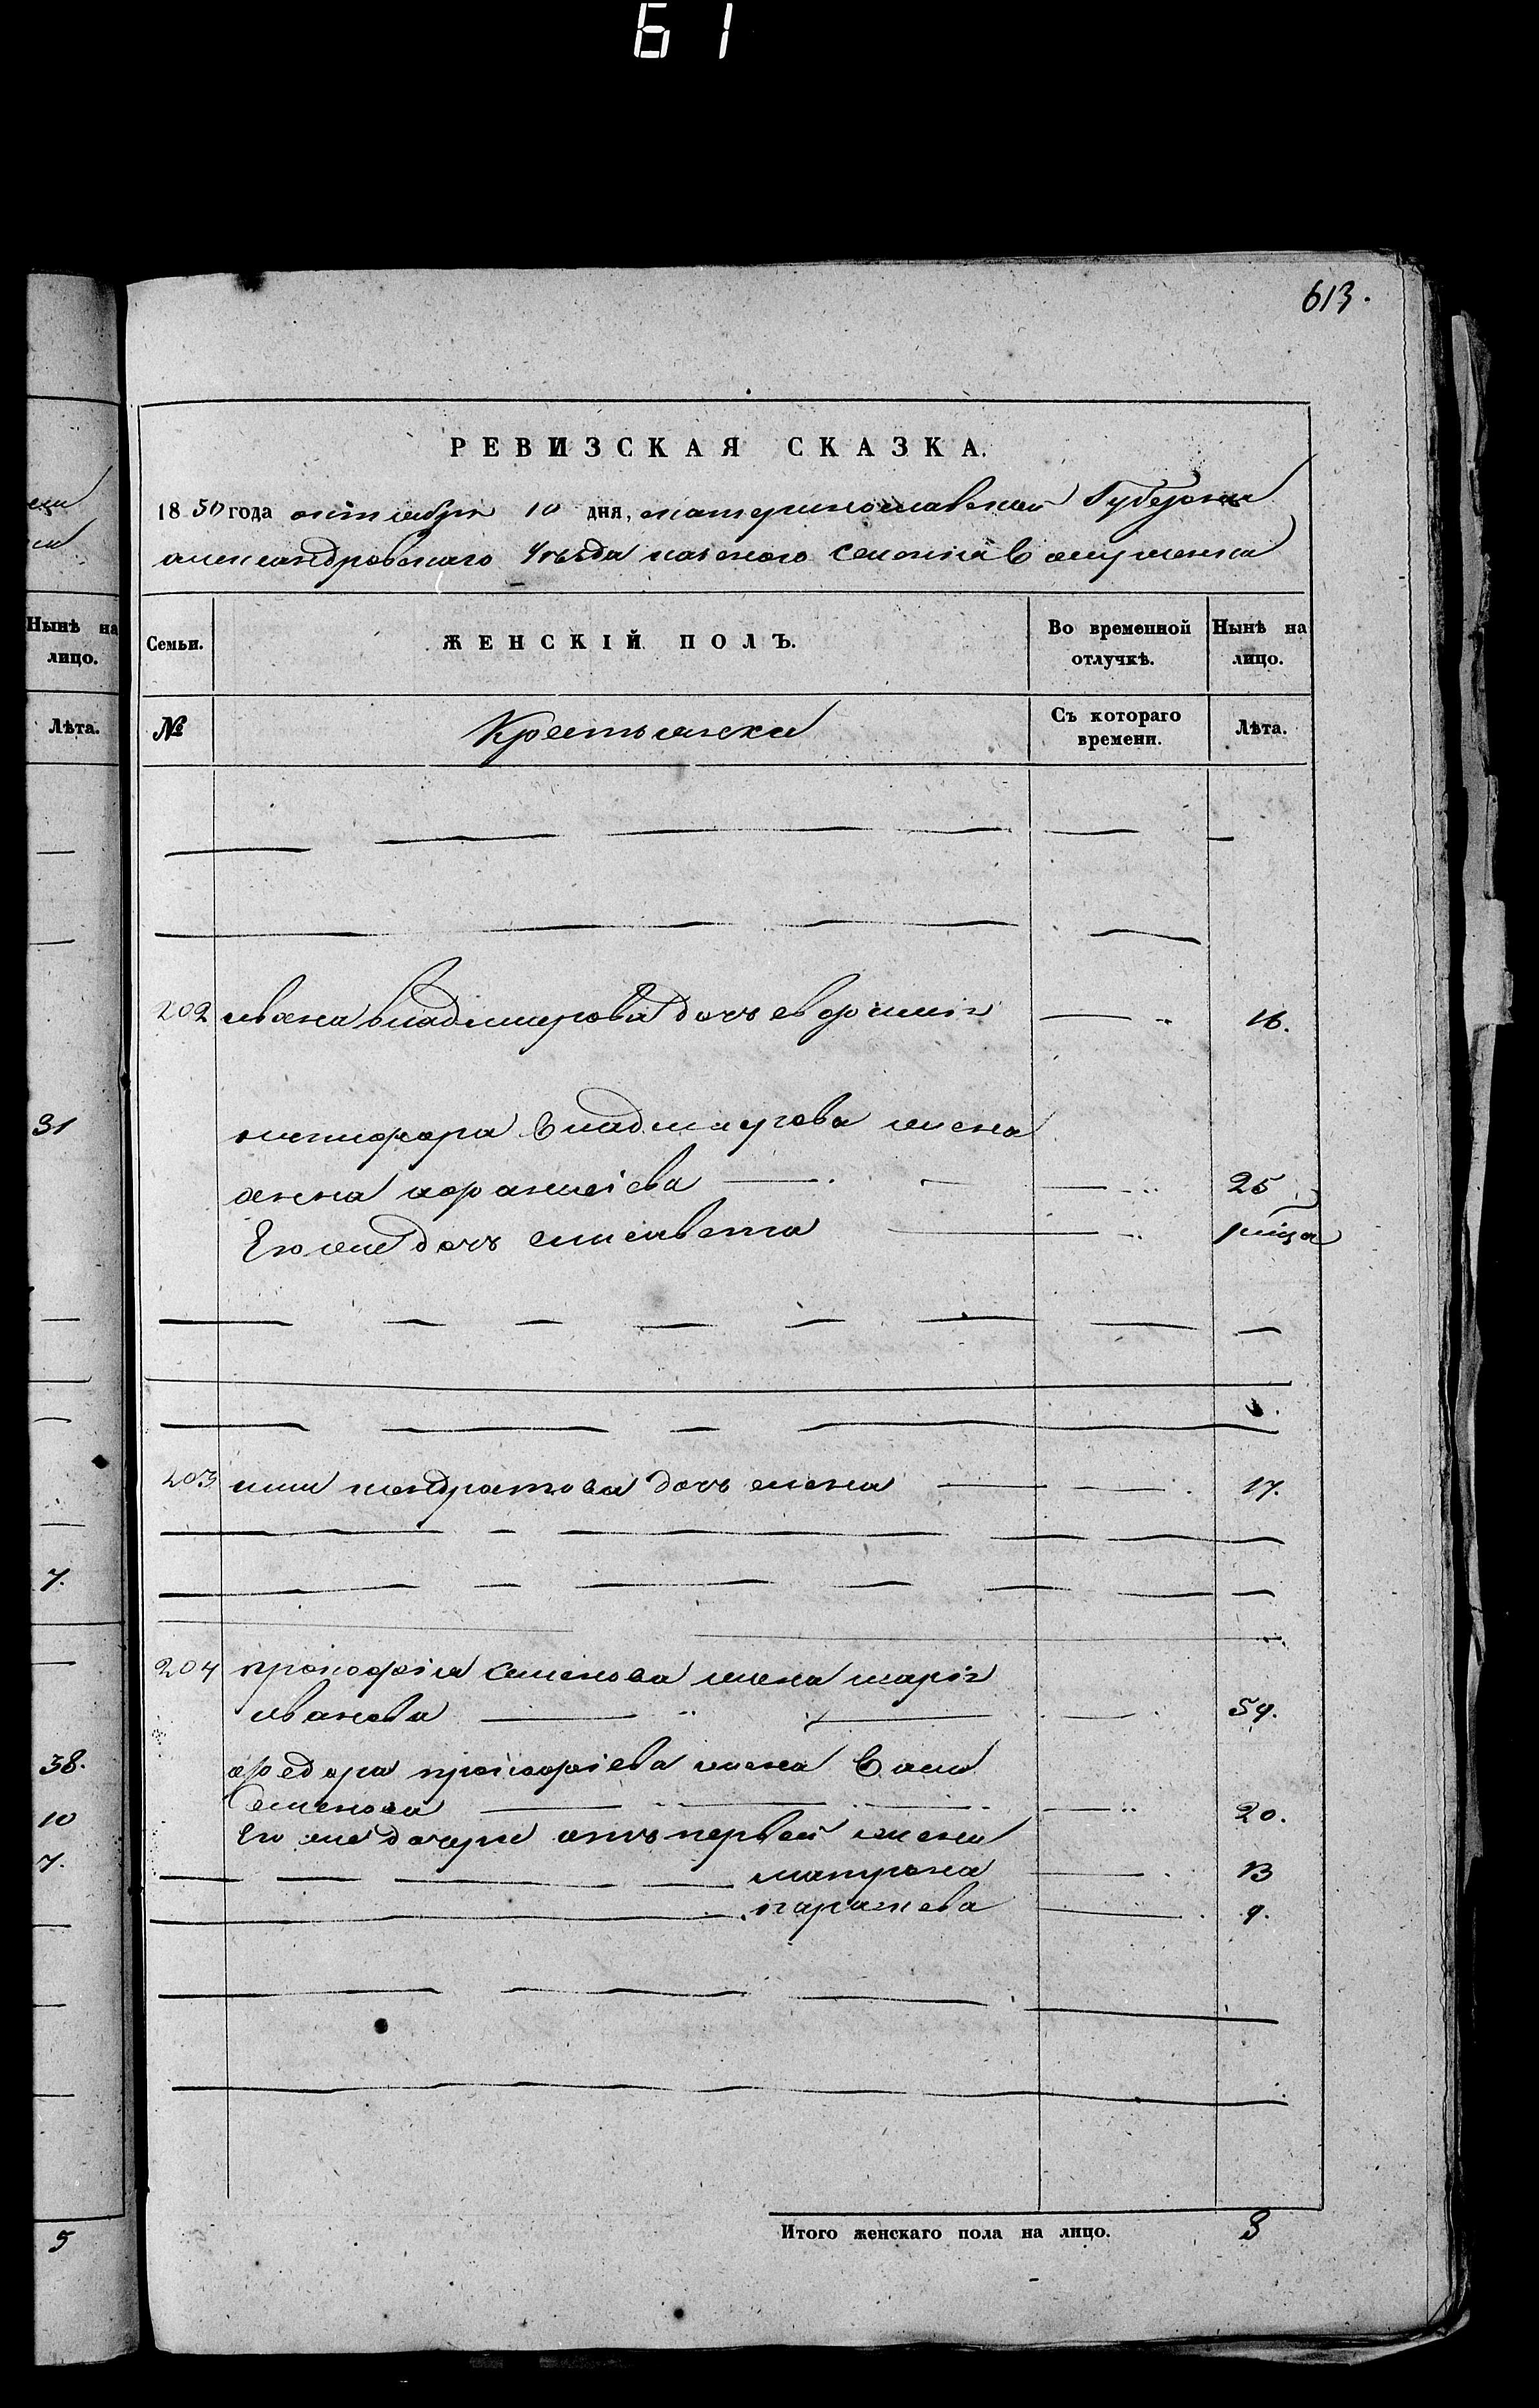 61
613.
РЕВИЗСКАЯ СКАЗКА.
1850 года октября 10 дня, екатеринославской Губернии
александровского Уезда казеного селения
Нынѣ на лицо.
Семьи.
ЖЕНСКІЙ ПОЛЪ.
Во временной отлучкѣ.
Нынѣ на лицо.
Лѣта.
№
Крестьянски
Съ котораго времени.
Лѣта.
202 ивана владимирова дочъ 16.
31
никифора владимирова жена
анна 25
Его же дочъ елисавета
203 кондратова дочъ елена 17.
7.
204 прокофія семенова жена марія
иванова 59.
38.
федора прокофіева жена
Семенова 20.
10
Его же дочери отъ первой жены
7.
матрона 13
паражева 9.
Итого женскаго пола на лицо. 8
5